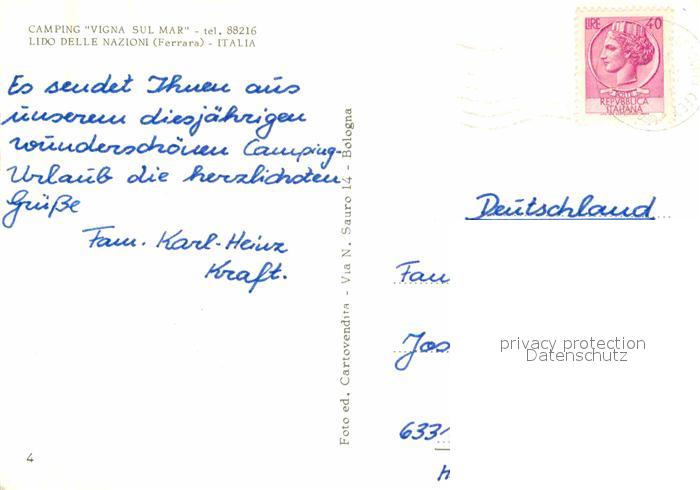 CAMPING "VIGNA SUL MAR" - tel. 88216
LIDO DELLE NAZIONI (Ferrara) - ITALIA
Es sendet Ihnen aus
unserem diesjährigen
wunderschönen Camping-
Urlaub die herzlichsten
Grüße
Fam. Karl-Heinz
Kraft.
4
Foto ed. Cartovendita - Via N. Sauro 14 - Bologna
LIRE 40
POSTE
REPVBBLICA
ITALIANA
Deutschland
Fam
Jos
633
privacy protection
Datenschutz